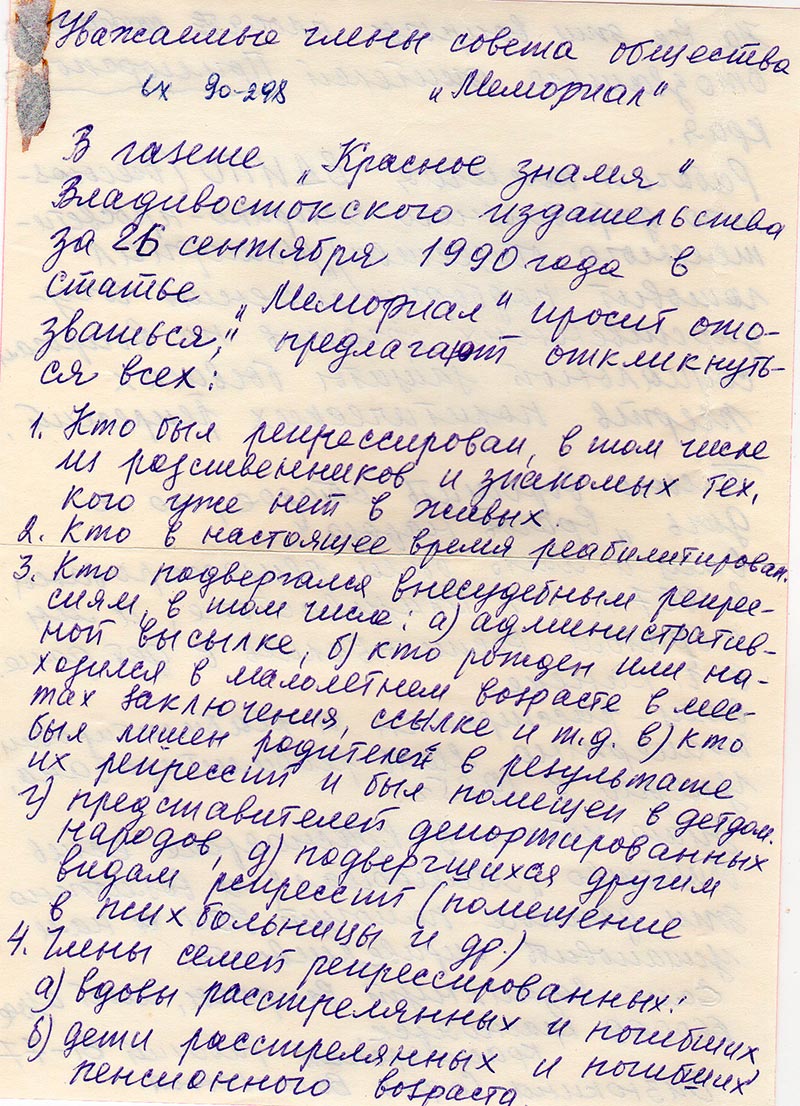 Уважаемые члены совета общества
вх 90-298 „Мемориал"
В газете „Красное знамя"
Владивостокского издательства
за 26 сентября 1990 года в
статье „Мемориал" просит ото-
зваться", предлагают откликнуть-
ся всех:
1. Кто был репрессирован, в том числе
из родственников и знакомых тех,
кого уже нет в живых.
2. Кто в настоящее время реабилитирован.
3. Кто подвергался внесудебным репрес-
сиям, в том числе: а) административ-
ной высылке, б) кто рожден или на-
ходился в малолетнем возрасте в мес-
тах заключения, ссылке и т.д. в) кто
был лишен родителей в результате
их репрессий и был помещен в детдом.
г) представителей депортированных
народов, д) подвергшихся другим
видам репрессий (помещение
в псих больницы и др.)
4. Члены семей репрессированных:
а) вдовы расстрелянных и погибших
б) дети расстрелянных и погибших
пенсионного возраста